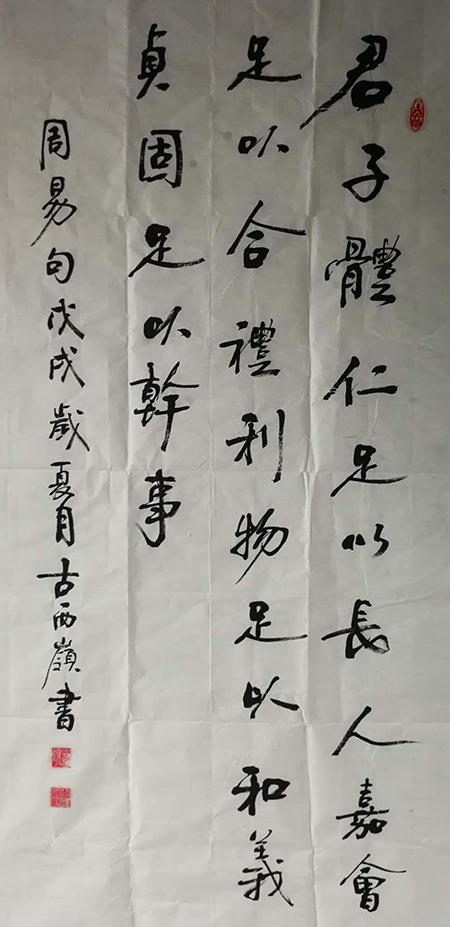 君子體仁足以長人嘉會
足以合禮利物足以和義
貞固足以幹事
周易句戊戌歲夏月古西嶺書